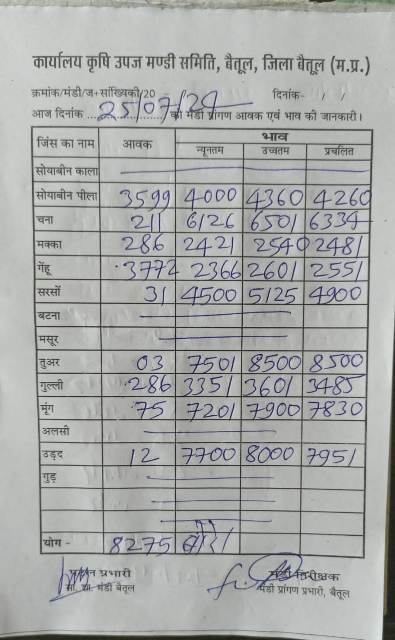 कार्यालय कृषि उपज मण्डी समिति, बैतूल, जिला बैतूल (म.प्र.)
क्रमांक/मंडी/ज+सांख्यिकी/20 दिनांक- / /
आज दिनांक 25/07/24 की मंडी प्रांगण आवक एवं भाव की जानकारी।
जिंस का नाम आवक भाव
न्यूनतम उच्चतम प्रचलित
सोयाबीन काला
सोयाबीन पीला 3599 4000 4360 4260
चना 211 6126 6501 6334
मक्का 286 2421 2540 2481
गेंहू 3772 2366 2601 2551
सरसों 31 4500 5125 4900
बटना
मसूर
तुअर 03 7501 8500 8500
गुल्ली 286 3351 3601 3485
मूंग 75 7201 7900 7830
अलसी
उड़द 12 7700 8000 7951
गुड़
योग - 8275 बोरे।
प्रांगन प्रभारी मंडी निरीक्षक
मंडी बैतूल मंडी प्रांगण प्रभारी, बैतूल